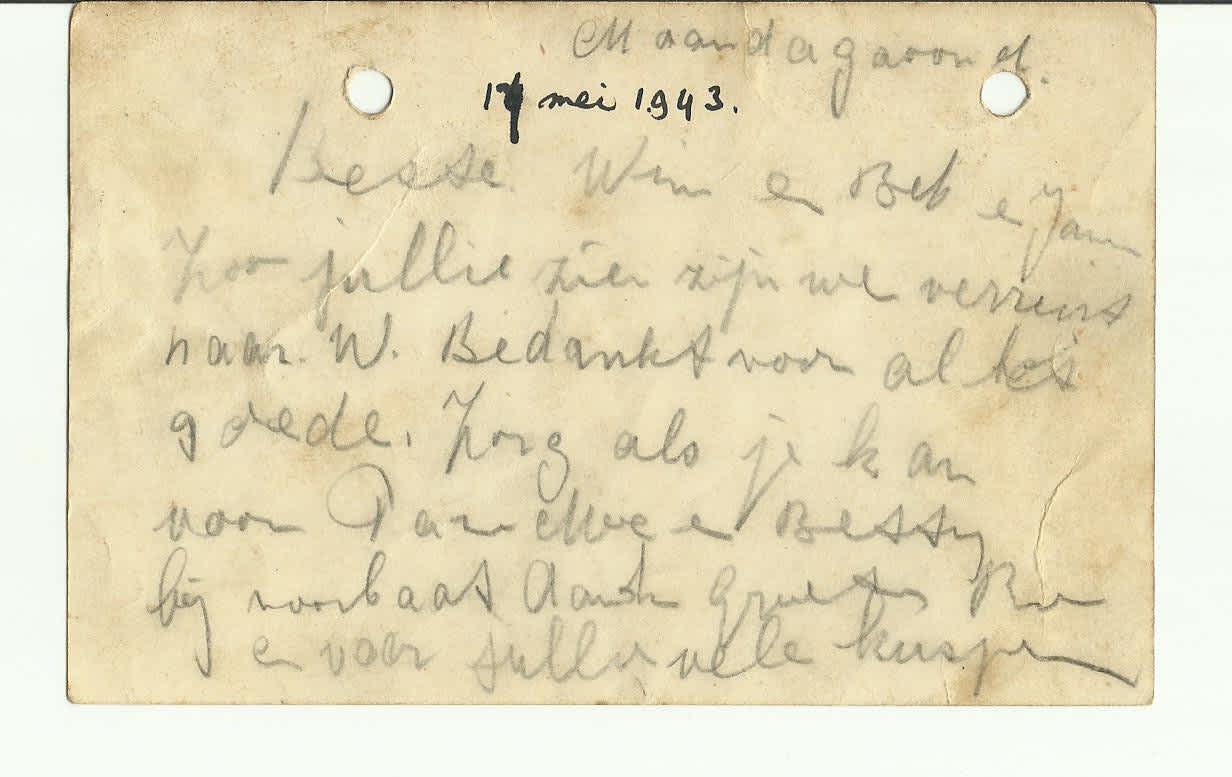 Maandagavond.
17 mei 1943.
Beste Wim e Beb e Jan
Zoo jullie zien zijn we verreist
naar W. Bedankt voor al het
goede. Zorg als je kan
voor Pa e Moe e Betsy
bij voorbaat dank Groeten
e voor jullie vele kusjen